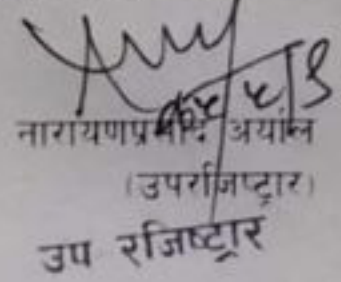 नारायणप्रसाद अर्याल
(उपरजिष्ट्रार)
उप रजिष्ट्रार